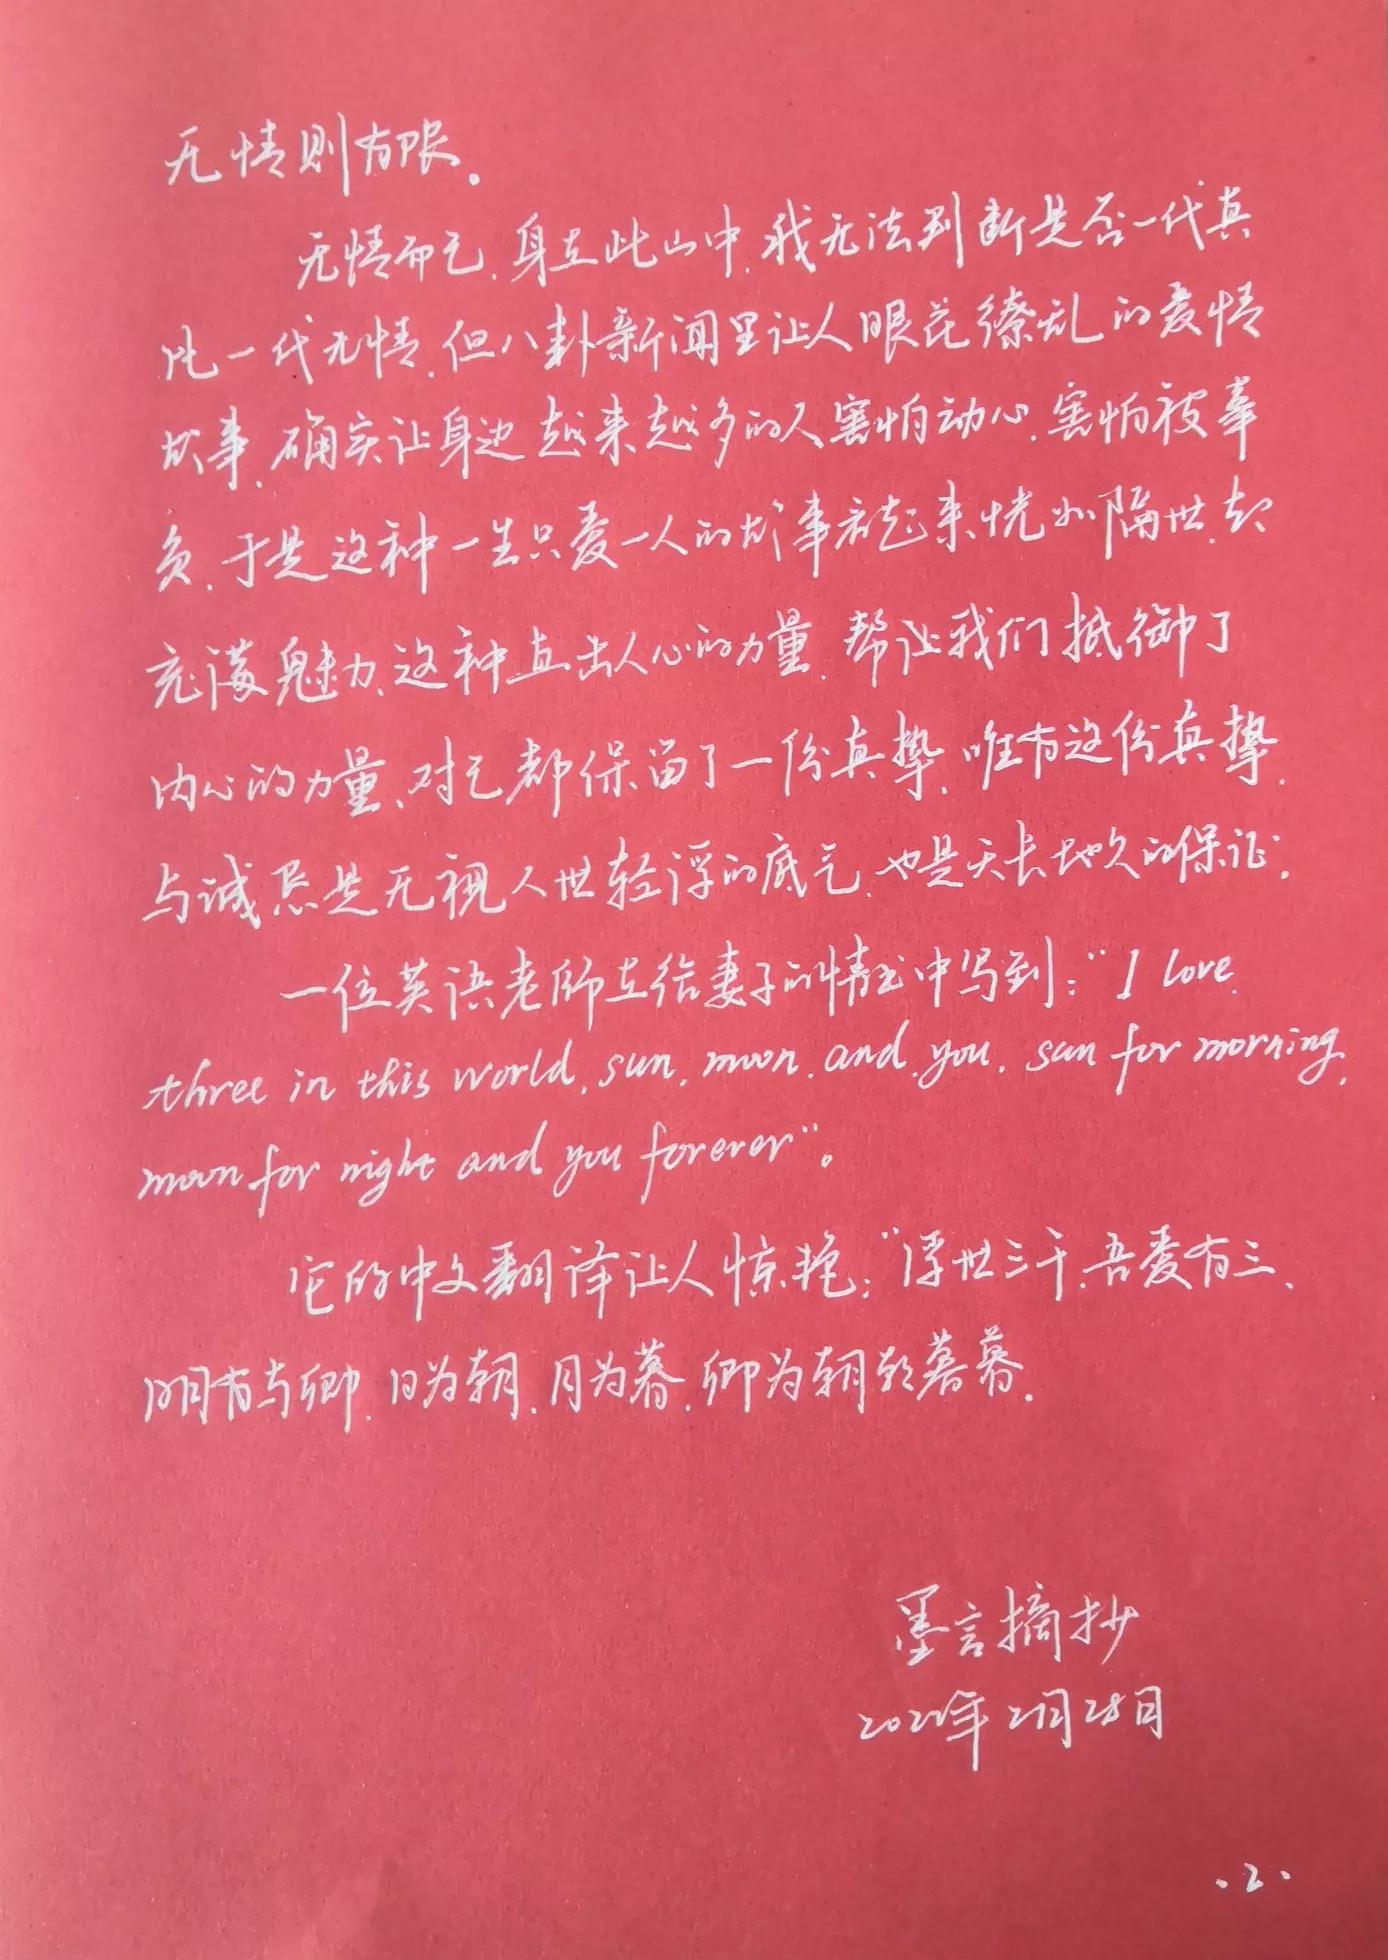 无情则有限。
无情而已,身在此山中,我无法判断是否一代真
比一代无情,但八卦新闻里让人眼花缭乱的爱情
故事,确实让身边越来越多的人害怕动心,害怕被辜
负,于是这种一生只爱一人的故事看起来恍如隔世,却
充满魅力,这种直击人心的力量,帮让我们抵御了
内心的力量,对已都保留了一份真挚,唯有这份真挚,
与诚恳是无视人世轻浮的底气,也是天长地久的保证。
一位英语老师在给妻子的情书中写到:“I love
three in this world, sun, moon, and you, sun for morning,
moon for night and you forever”。
它的中文翻译让人惊艳:“浮世三千,吾爱有三、
明月与卿,日为朝,月为暮,卿为朝朝暮暮。
墨言摘抄
2022年2月28日
·2·